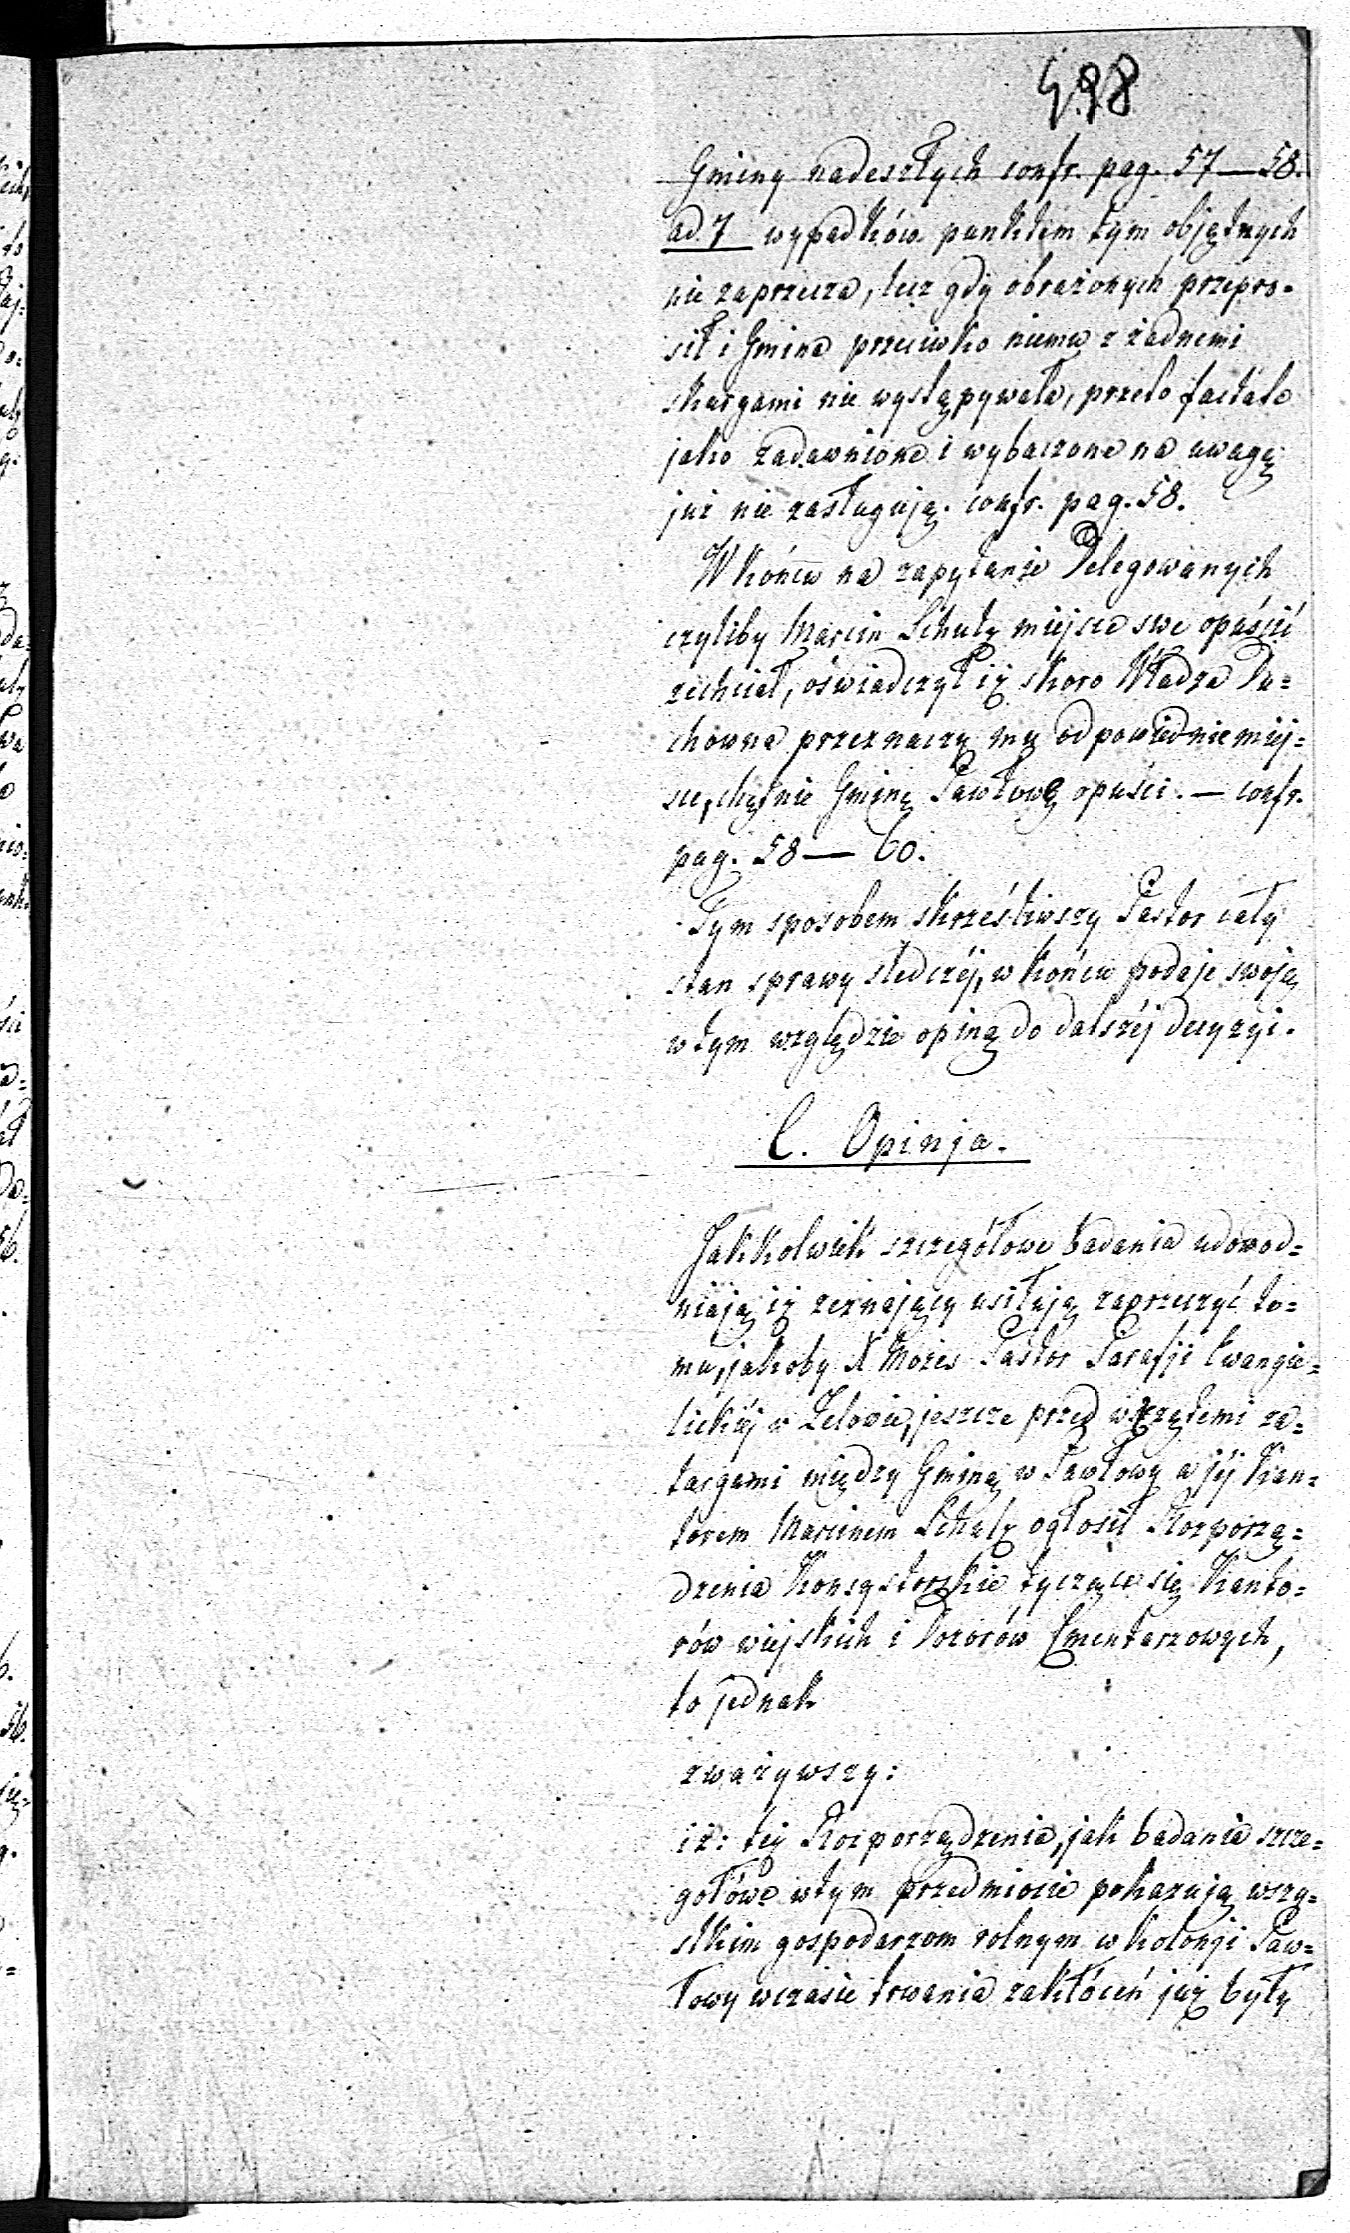 498
Gminy nadeszłych confr. pag. 57—58.
ad 7 wypadków punktem tym objętych
nie zaprzecza, lecz gdy obrażonych przepro-
sił i Gmina przeciwko niemu z żadnemi
skargami nie występywała, przeto facta te
jako zadawnione i wybaczone na uwagę
już nie zasługują. confr. pag. 58.
W końcu na zapytanie Delegowanych
czyliby Marcin Schulz miejsce swe opuścić
zechciał, oświadczył iż skoro Władza Du=
chowna przeznaczy mu odpowiednie miej=
sce, chętnie Gminę Pawłowę opuści. — confr.
pag. 58 — 60.
Tym sposobem skreśliwszy Pastor cały
stan sprawy śledczéj, w końcu podaje swoję
w tym względzie opinę do dalszéj decyzyi.
C. Opinja.
Jakkolwiek szczegółowe badania udowod=
niają iż zeznający usiłują zaprzeczyć to=
mu, jakoby X Mozes Pastor Parafji Ewangie=
lickiéj w Zelowie, jeszcze przed wszczętemi za=
targami między Gminą w Pawłowy a jéj Kan=
torem Marcinem Schulz ogłosił Rozporzą=
dzenia Konsystorskie tyczące się Kanto=
rów wiejskich i Dozorów Cmentarzowych,
to jednak
zważywszy:
iż: téż Rozporządzenia, jak badania szcze=
gołówe w tym przedmiocie pokazują wszy=
stkim gospodarzom rolnym w Kolonji Paw=
łowy w czasie trwania zakłóceń już były